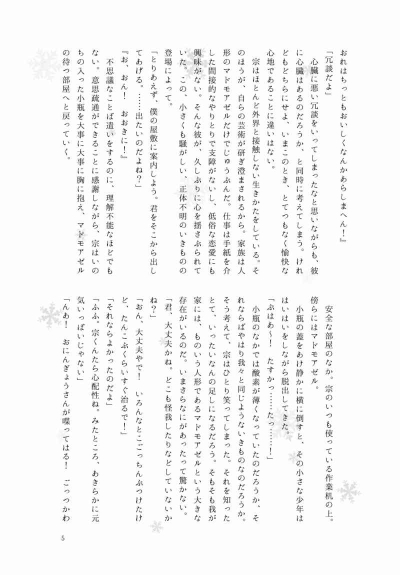 おれはちっともおいしくなんかあらしまへん！」
「冗談だよ」
　心臓に悪い冗談をいってしまったなと思いながらも、彼
に心臓はあるのだろうか、と同時に考えてしまう。けれ
どもどちらにせよ、いまこのとき、とてつもなく愉快な
心地であることに違いはない。
　宗はほとんど外界と接触しない生きかたをしている。そ
のほうが、自らの芸術が研ぎ澄まされるから。家族は人
形のマドモアゼルだけでじゅうぶんだ。仕事は手紙を介
した間接的なやりとりで支障がないし、低俗な恋愛にも
興味がない。そんな彼が、久しぶりに心を揺さぶられて
いた。この、小さくも騒がしい、正体不明のいきものの
登場によって。
「とりあえず、僕の屋敷に案内しよう。君をそこから出し
てあげる。……出たいのだよね？」
『お、おん！　おおきに！』
　不思議なことば遣いをするのに、理解不能なほどでも
ない。意思疎通ができることに感謝しながら、宗はいの
ちの入った小瓶を大事に大事に胸に抱え、マドモアゼル
の待つ部屋へと戻っていく。
　安全な部屋のなか。宗のいつも使っている作業机の上。
傍らにはマドモアゼル。
　小瓶の蓋をあけ静かに横に倒すと、その小さな少年は
はいはいをしながら脱出してきた。
「ぷはあ〜！　たすかっ……たっ……！」
　小瓶のなかでは酸素が薄くなっていたのだろうか、そ
れならばやはり我々と同じようないきものなのだろうか。
そう考えて、宗はひとり笑ってしまった。それを知った
とて、いったいなんの足しになるだろう、そもそも我が
家には、ものいう人形であるマドモアゼルという大きな
存在がいるのだ。いまさらなにがあったって驚かない。
「君、大丈夫かね。どこも怪我したりなどしていないか
ね？」
「おん、大丈夫やで！　いろんなとこごっちんぶつけたけ
ど、たんこぶくらいすぐ治るで！」
「それならよかったのだよ」
『ふふ、宗くんたら心配性ね。みたところ、あきらかに元
気いっぱいじゃない』
「んあ！　おにんぎょうさんが喋ってはる！　ごっつかわ
5